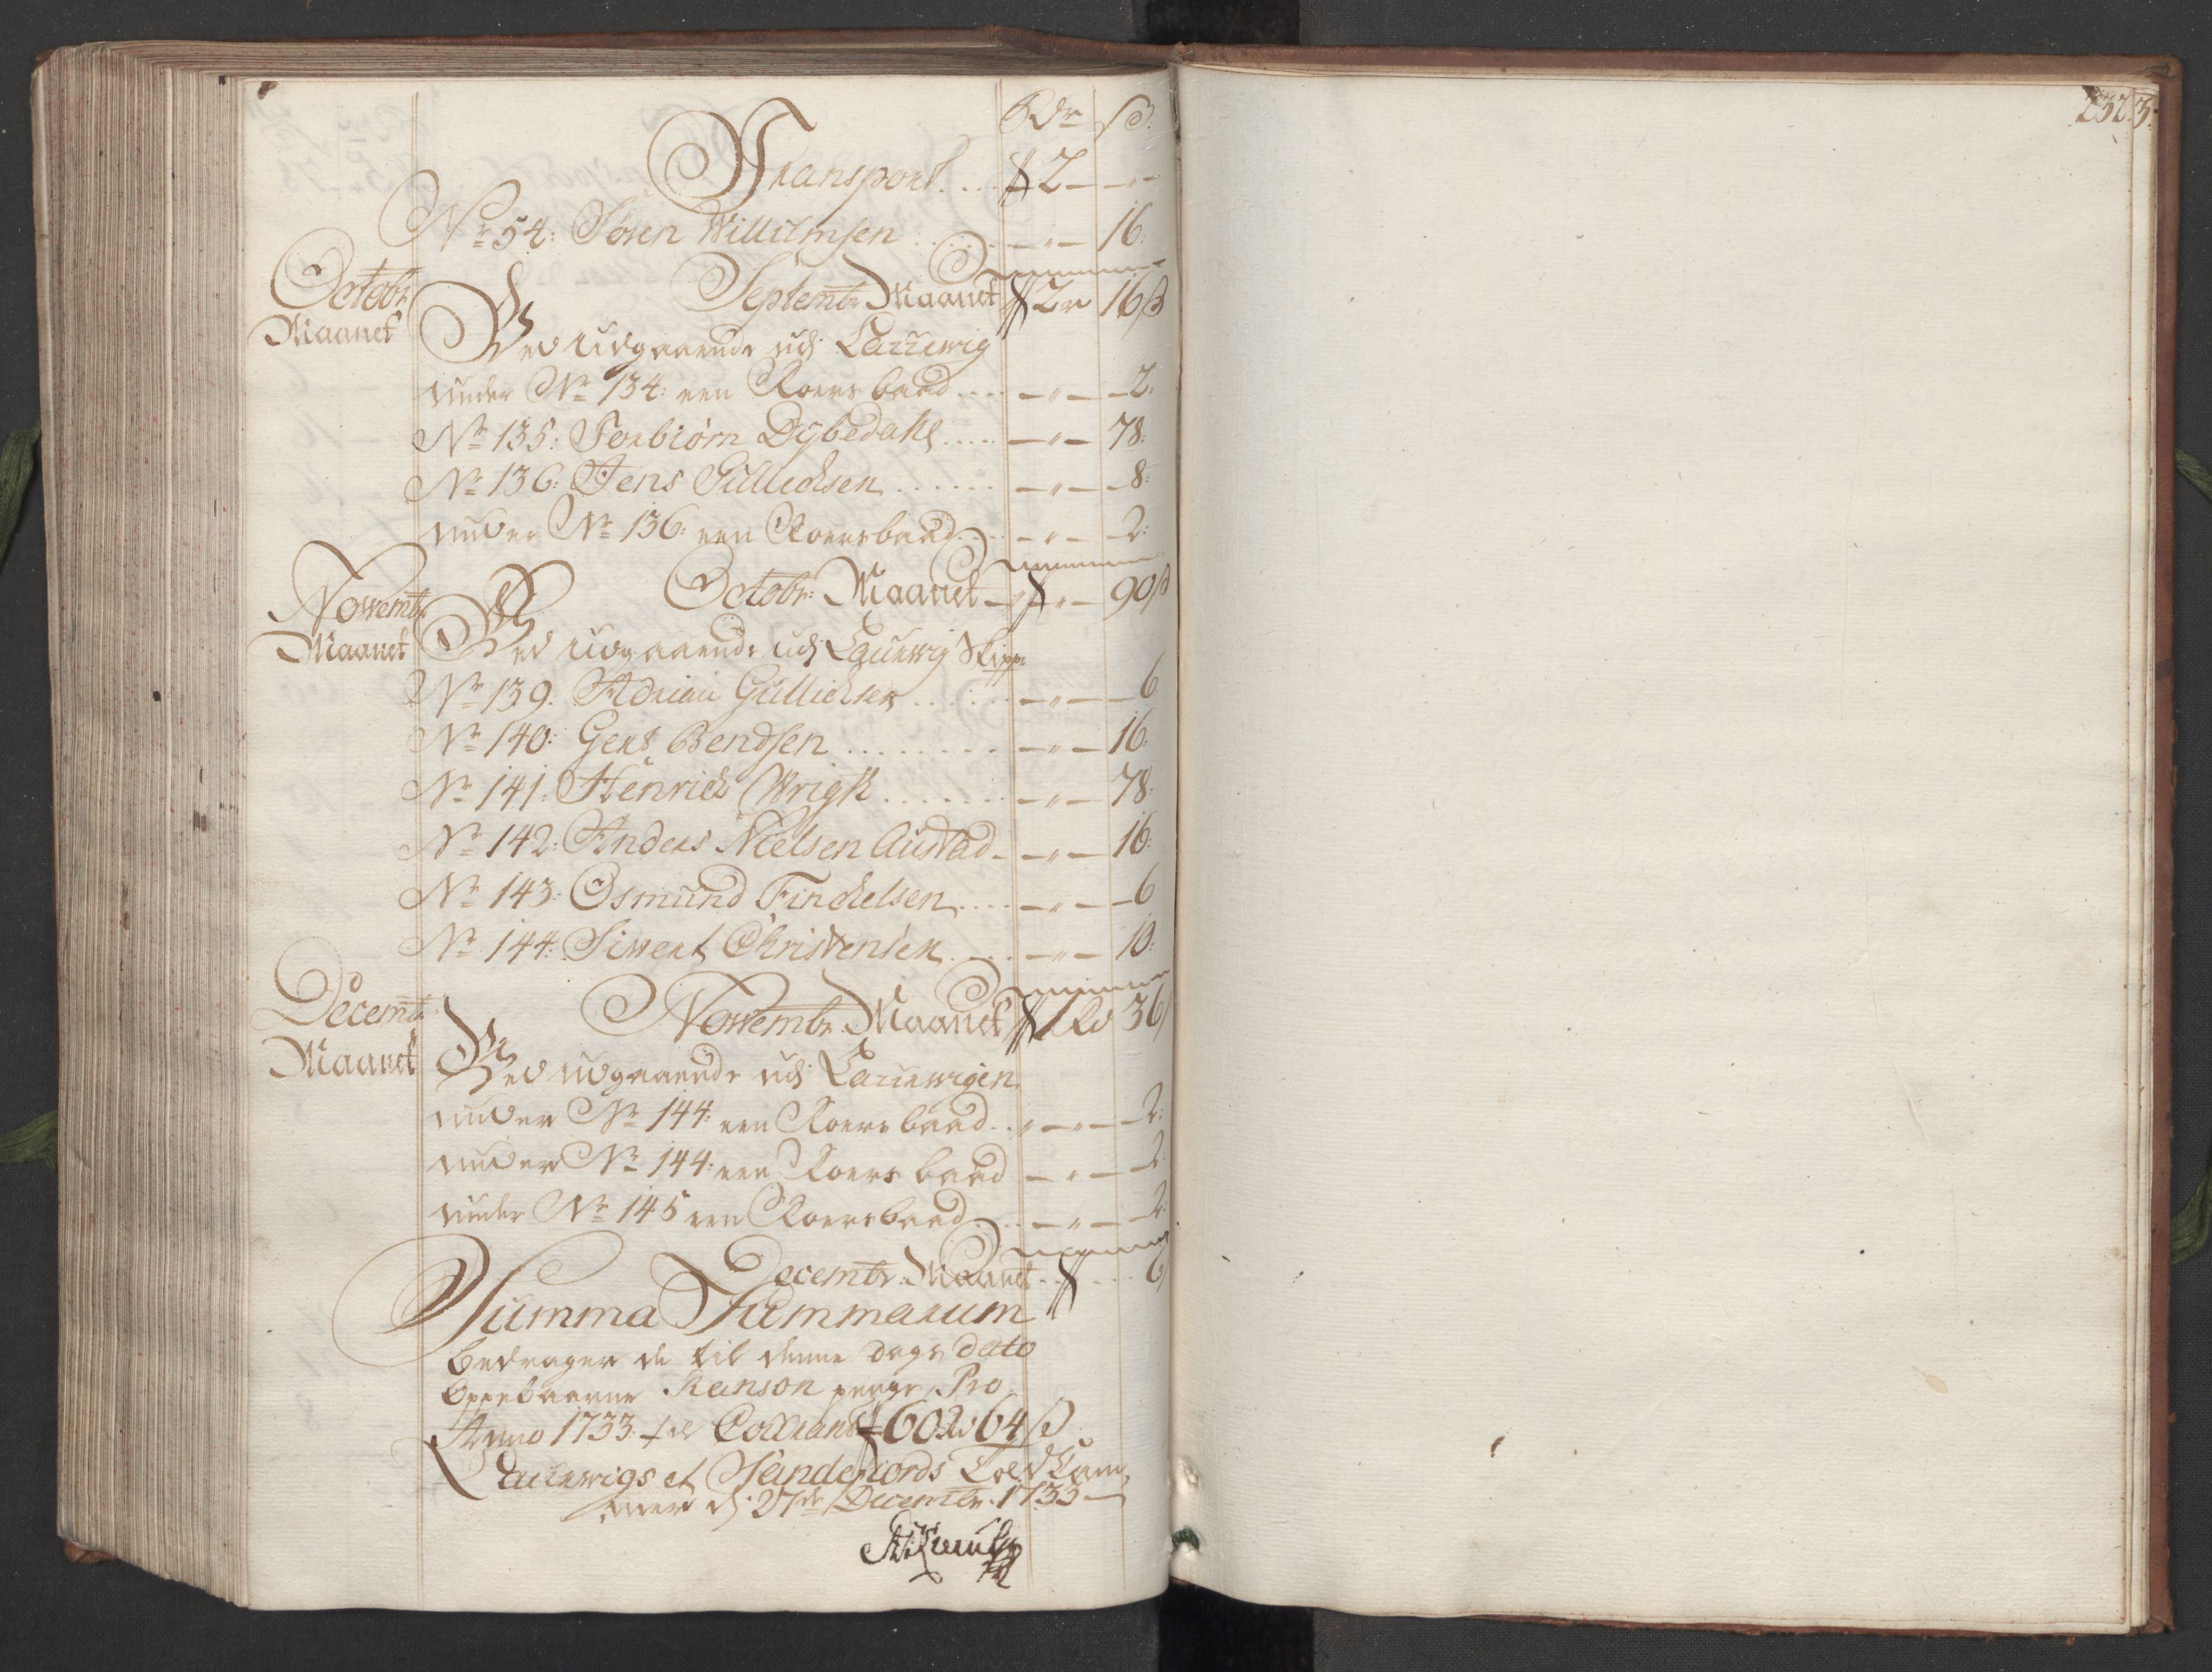 Rdr ß.
Transport .... 2 — „ —
Nr 54: Søren Willumsen ..... — „ — 16:
Septembr Maanet 2 r 16 ß
Octobr
Maanet
Ved udgaaende udj Laurwig
under Nr 134: een Roersbaad .... — „ — 2:
Nr 135: Torbiørn Dybedahl ..... — „ — 78:
Nr 136: Jens Gullichsen ...... — „ — 8:
under Nr 136: een Roersbaad ... — „ — 2:
Octobr: Maanet — „ — 90 ß
Novembr
Maanet
Ved udgaaende udj Laurwig Skippr
Nr 139: Adrian Gullichsen ...... — „ — 6
Nr 140: Gert Bendsen ......... — „ — 16:
Nr 141: Henrich Wright ....... — „ — 78:
Nr 142: Anders Nielsen Austad - — „ — 16:
Nr 143: Osmund Finchelsen .... — „ — 6
Nr 144: Sivert Christensen .... — „ — 10:
Novembr: Maanet 1 Rd 36 ß
Decembr
Maanet
Ved udgaaende udj Laurwigen
under Nr 144: een Roersbaad .. — „ — 2:
under Nr 144: een Roers baad — „ — 2:
under Nr 145 een Roersbaad ... — „ — 2:
Decembr: Maanet ... 6 ß
Summa Summarum
bedrager de til denne dags dato
oppebaarne Ranson penge, Pro
Anno 1733. Courant 60 Rd 64 ß
Laurwigs et Sandefiords Told Cam
mer dj: 27de Decembr: 1733 —
232 3: